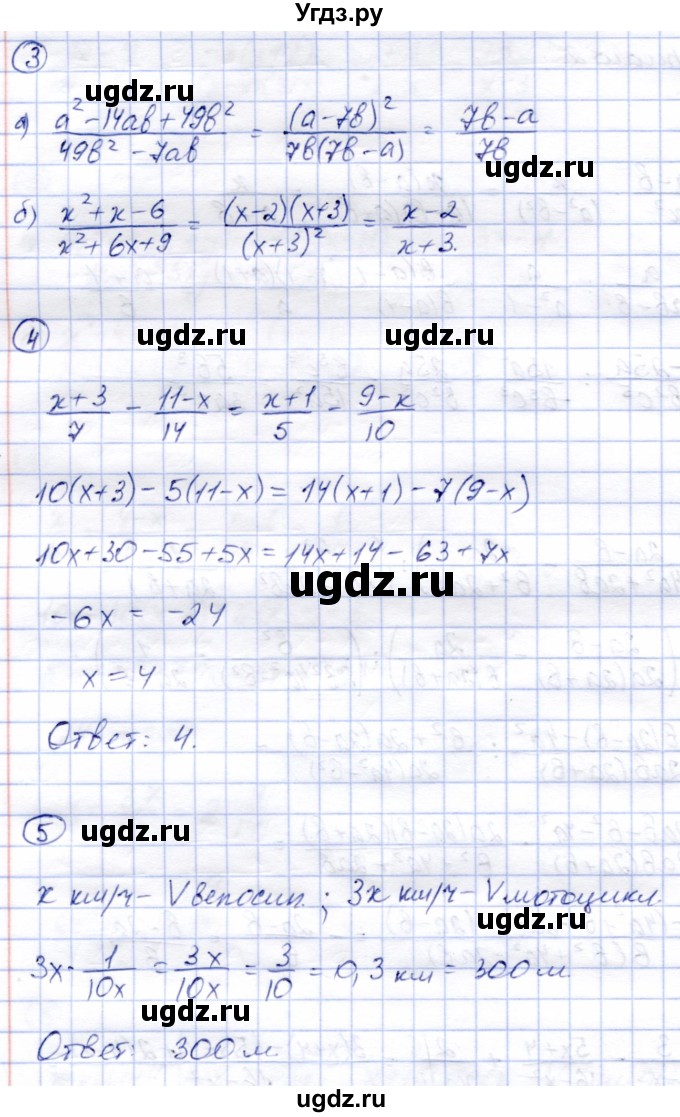 Угдз.ру
3
ugdz.ru
а) (a² - 14ab + 49b²)/(49b² - 7ab) = (a - 7b)²/(7b(7b - a)) = (7b - a)/(7b)
ugdz.ru
б) (x² + x - 6)/(x² + 6x + 9) = (x - 2)(x + 3)/(x + 3)² = (x - 2)/(x + 3).
4 ugdz.ru ugdz.ru
(x + 3)/7 - (11 - x)/14 = (x + 1)/5 - (9 - x)/10
10(x+3) - 5(11-x) = 14(x+1) - 7(9-x)
10x + 30 - 55 + 5x = 14x + 14 - 63 + 7x
ugdz.ru
-6x = -24
x = 4
Ответ: 4.
5 ugdz.ru
x км/ч - V велосип. ; 3x км/ч - V мотоцикл.
ugdz.ru
3x · 1/(10x) = 3x/(10x) = 3/10 = 0,3 км = 300 м
ugdz.ru
Ответ: 300 м.
ugdz.ru ugdz.ru